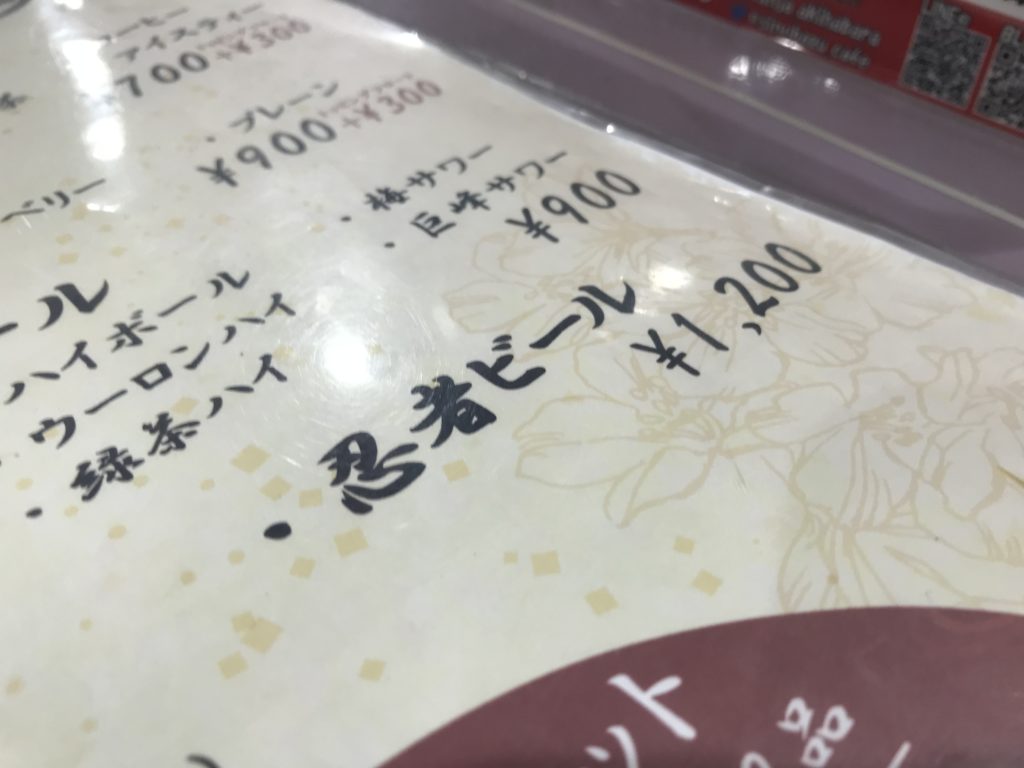 アイスティー
700 +¥300
・プレーン
¥900 +¥300
ベリー
・梅サワー
・巨峰サワー
¥900
ール
ハイボール
ウーロンハイ
・緑茶ハイ
・忍者ビール
¥1,200
ット
品
akihabara
cafe
LINE